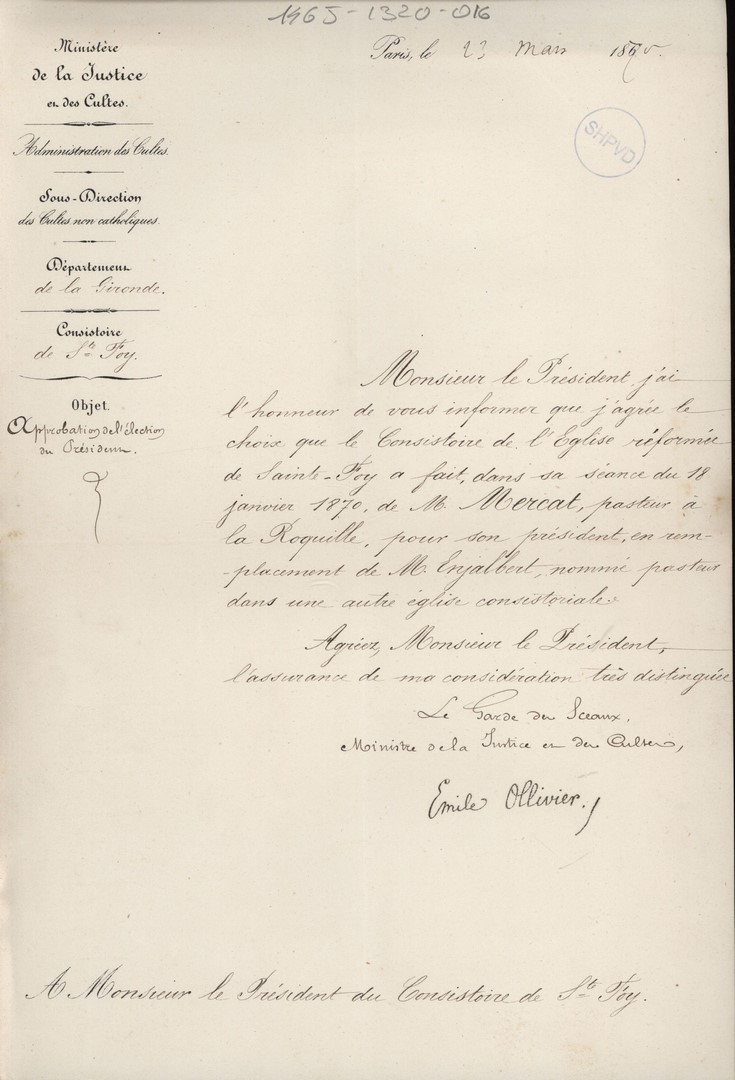 1965-1320-016
Ministère
de la Justice
et des Cultes.
Administration des Cultes.
Sous-Direction
des Cultes non catholiques.
Département
de la Gironde.
Consistoire
de Ste Foy.
Objet.
Approbation de l'élection
du Président.
Paris, le 23 Mars 1870.
SHPVD
Monsieur le Président, j'ai
l'honneur de vous informer que j'agrée le
choix que le Consistoire de l'Eglise réformée
de Sainte-Foy a fait, dans sa séance du 18
janvier 1870, de M. Mercat, pasteur à
la Roquille, pour son président, en rem-
-placement de M. Enjalbert, nommé pasteur
dans une autre église consistoriale.
Agréez, Monsieur le Président,
l'assurance de ma considération très distinguée
Le Garde des Sceaux,
Ministre de la Justice et des Cultes,
Emile Ollivier.
A Monsieur le Président du Consistoire de Ste Foy.